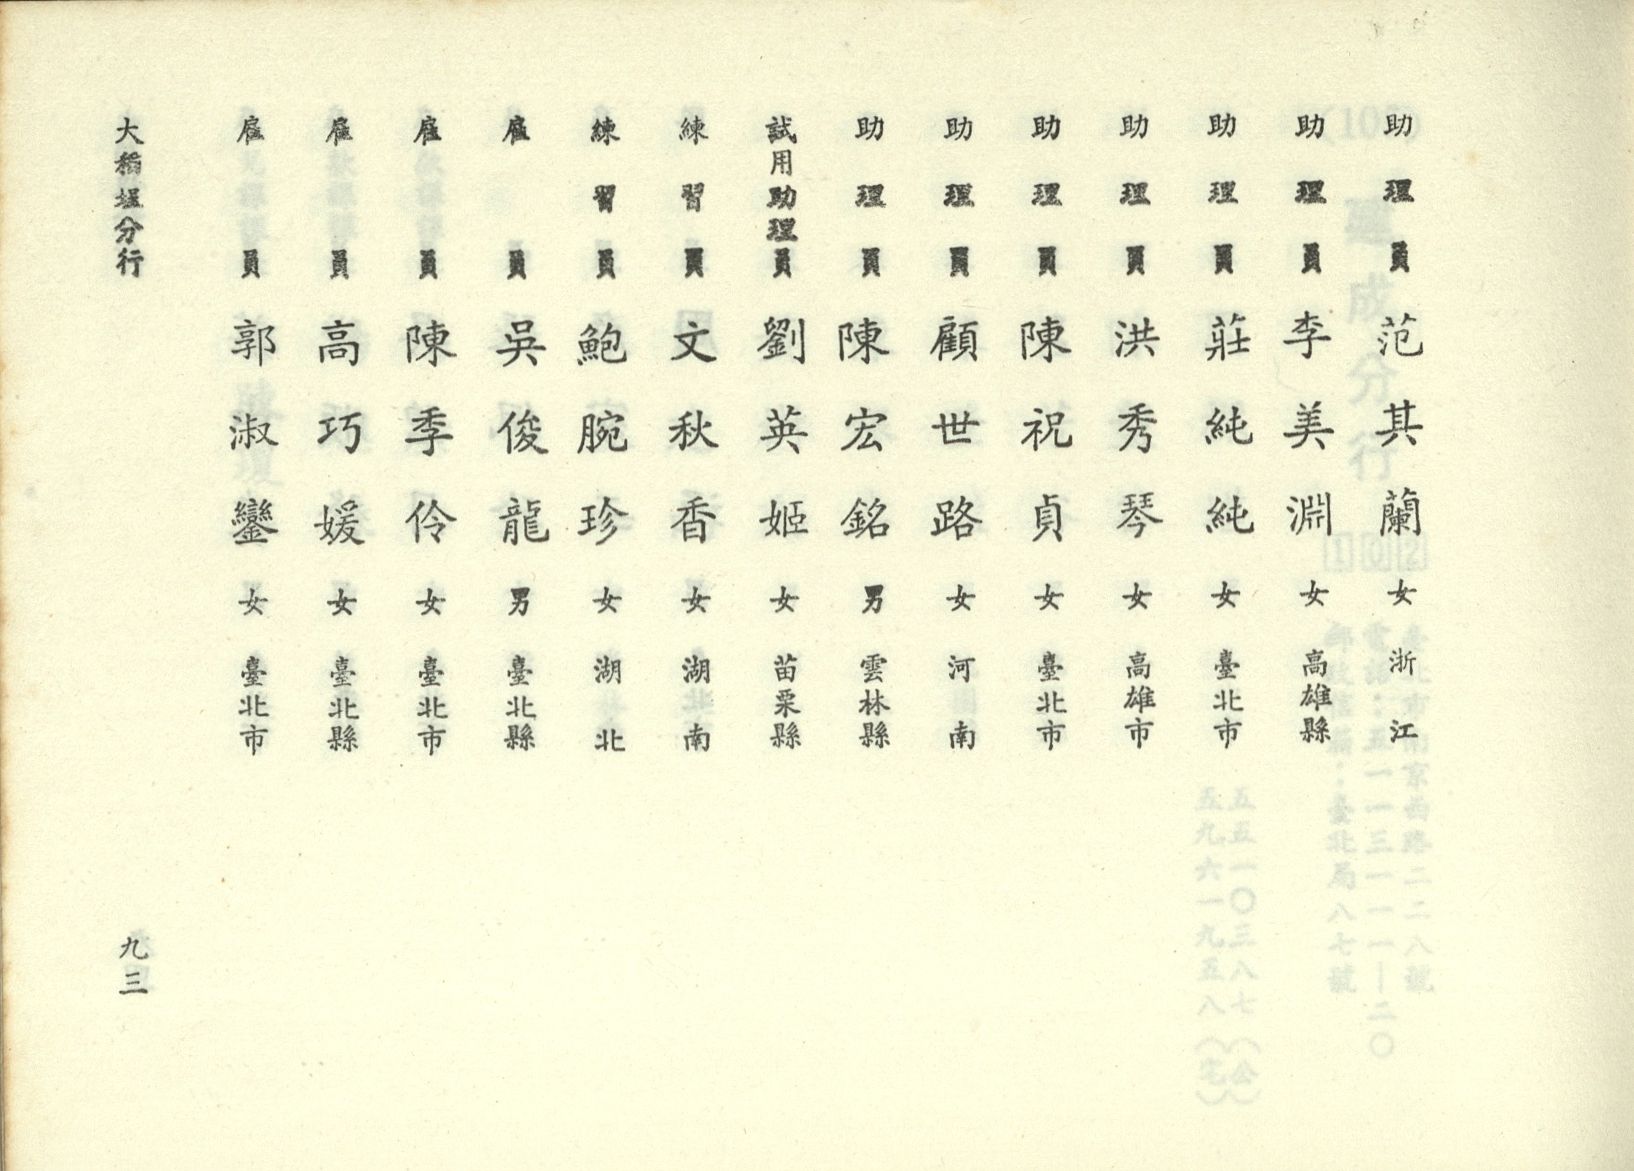 助理員 范其蘭 女 浙江
助理員 李美淵 女 高雄縣
助理員 莊純純 女 臺北市
助理員 洪秀琴 女 高雄市
助理員 陳祝貞 女 臺北市
助理員 顧世路 女 河南
助理員 陳宏銘 男 雲林縣
試用助理員 劉英姬 女 苗栗縣
練習員 文秋香 女 湖南
練習員 鮑腕珍 女 湖北
雇員 吳俊龍 男 臺北縣
雇員 陳季伶 女 臺北市
雇員 高巧媛 女 臺北縣
雇員 郭淑鑾 女 臺北市
大稻埕分行
九三